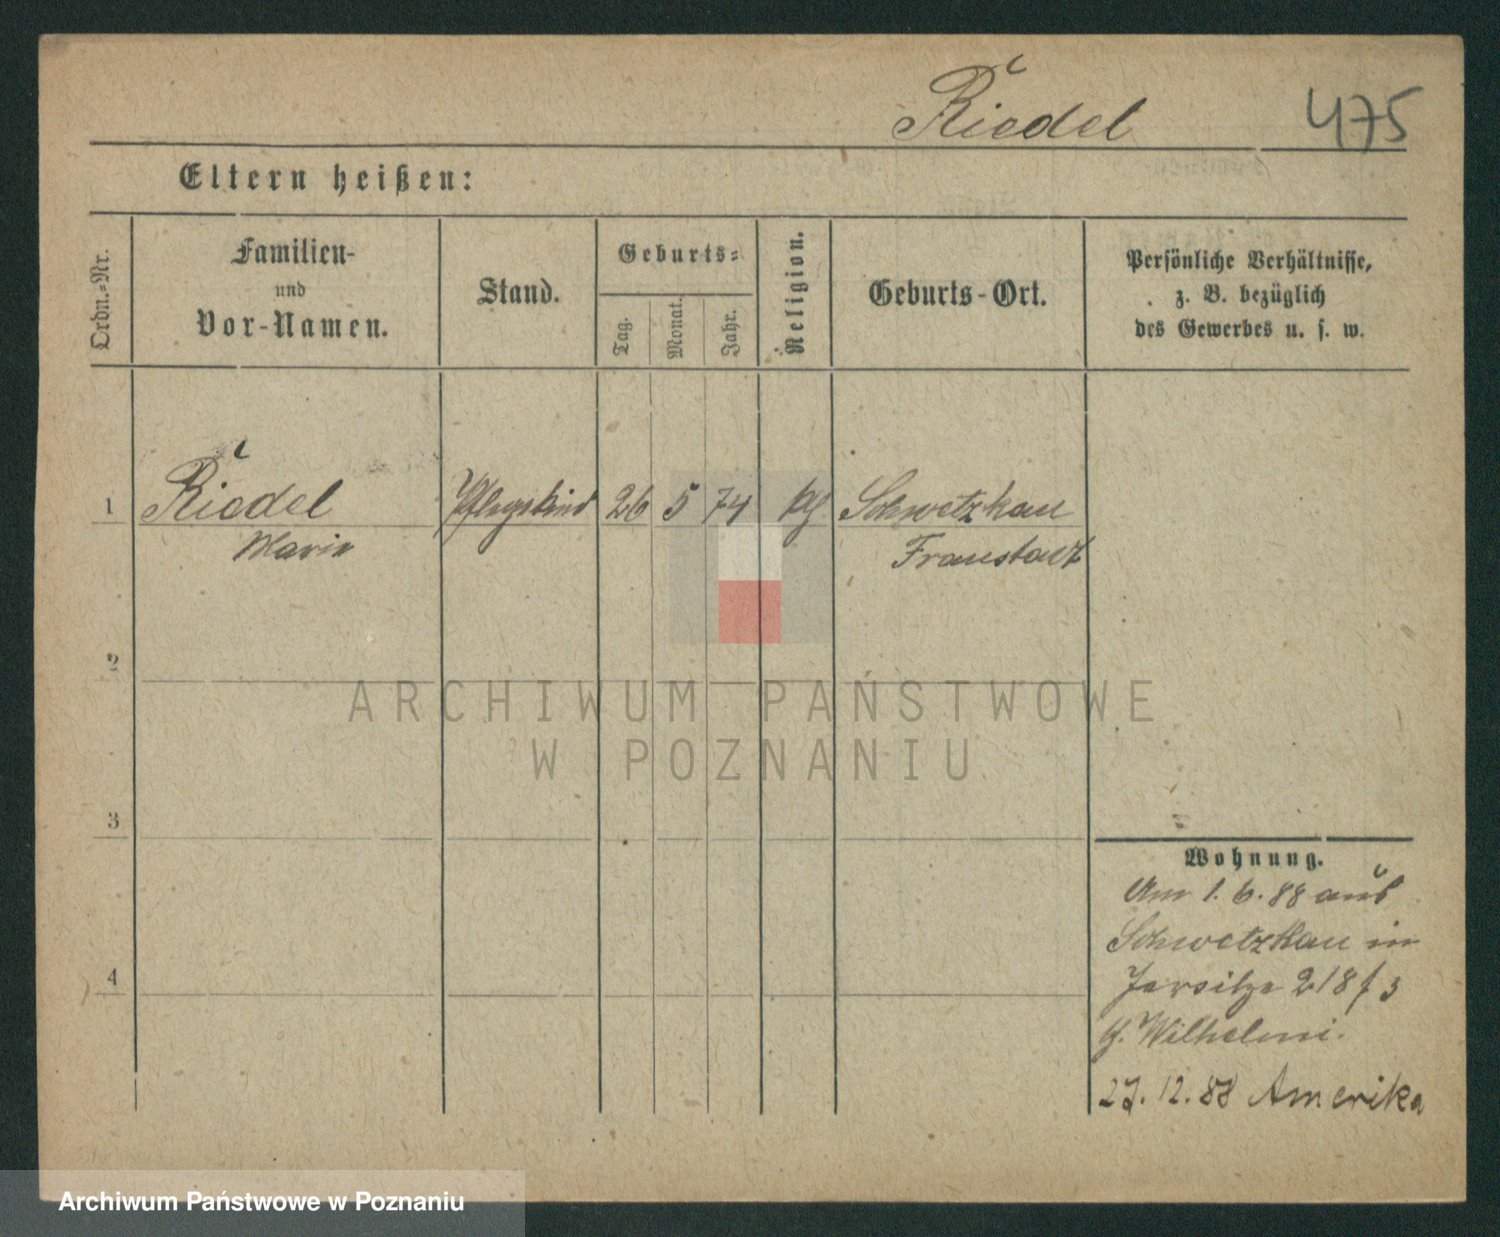 Riedel 475
Eltern heißen:
Ordn.-Nr.
Familien-
und
Vor-Namen.
Stand.
Geburts-
Tag.
Monat.
Jahr.
Religion.
Geburts-Ort.
Persönliche Verhältnisse,
z. B. bezüglich
des Gewerbes u. s. w.
1 Riedel Pflegekind 26 5 74 Schwetzkau
Marie Fraustadt
2
3
4
Wohnung.
Am 1. 6. 88 aus
Schwetzkau in
Jersitze 218 f 3
b. Wilhelmi.
27. 12. 88 Amerika
ARCHIWUM PAŃSTWOWE
W POZNANIU
Archiwum Państwowe w Poznaniu